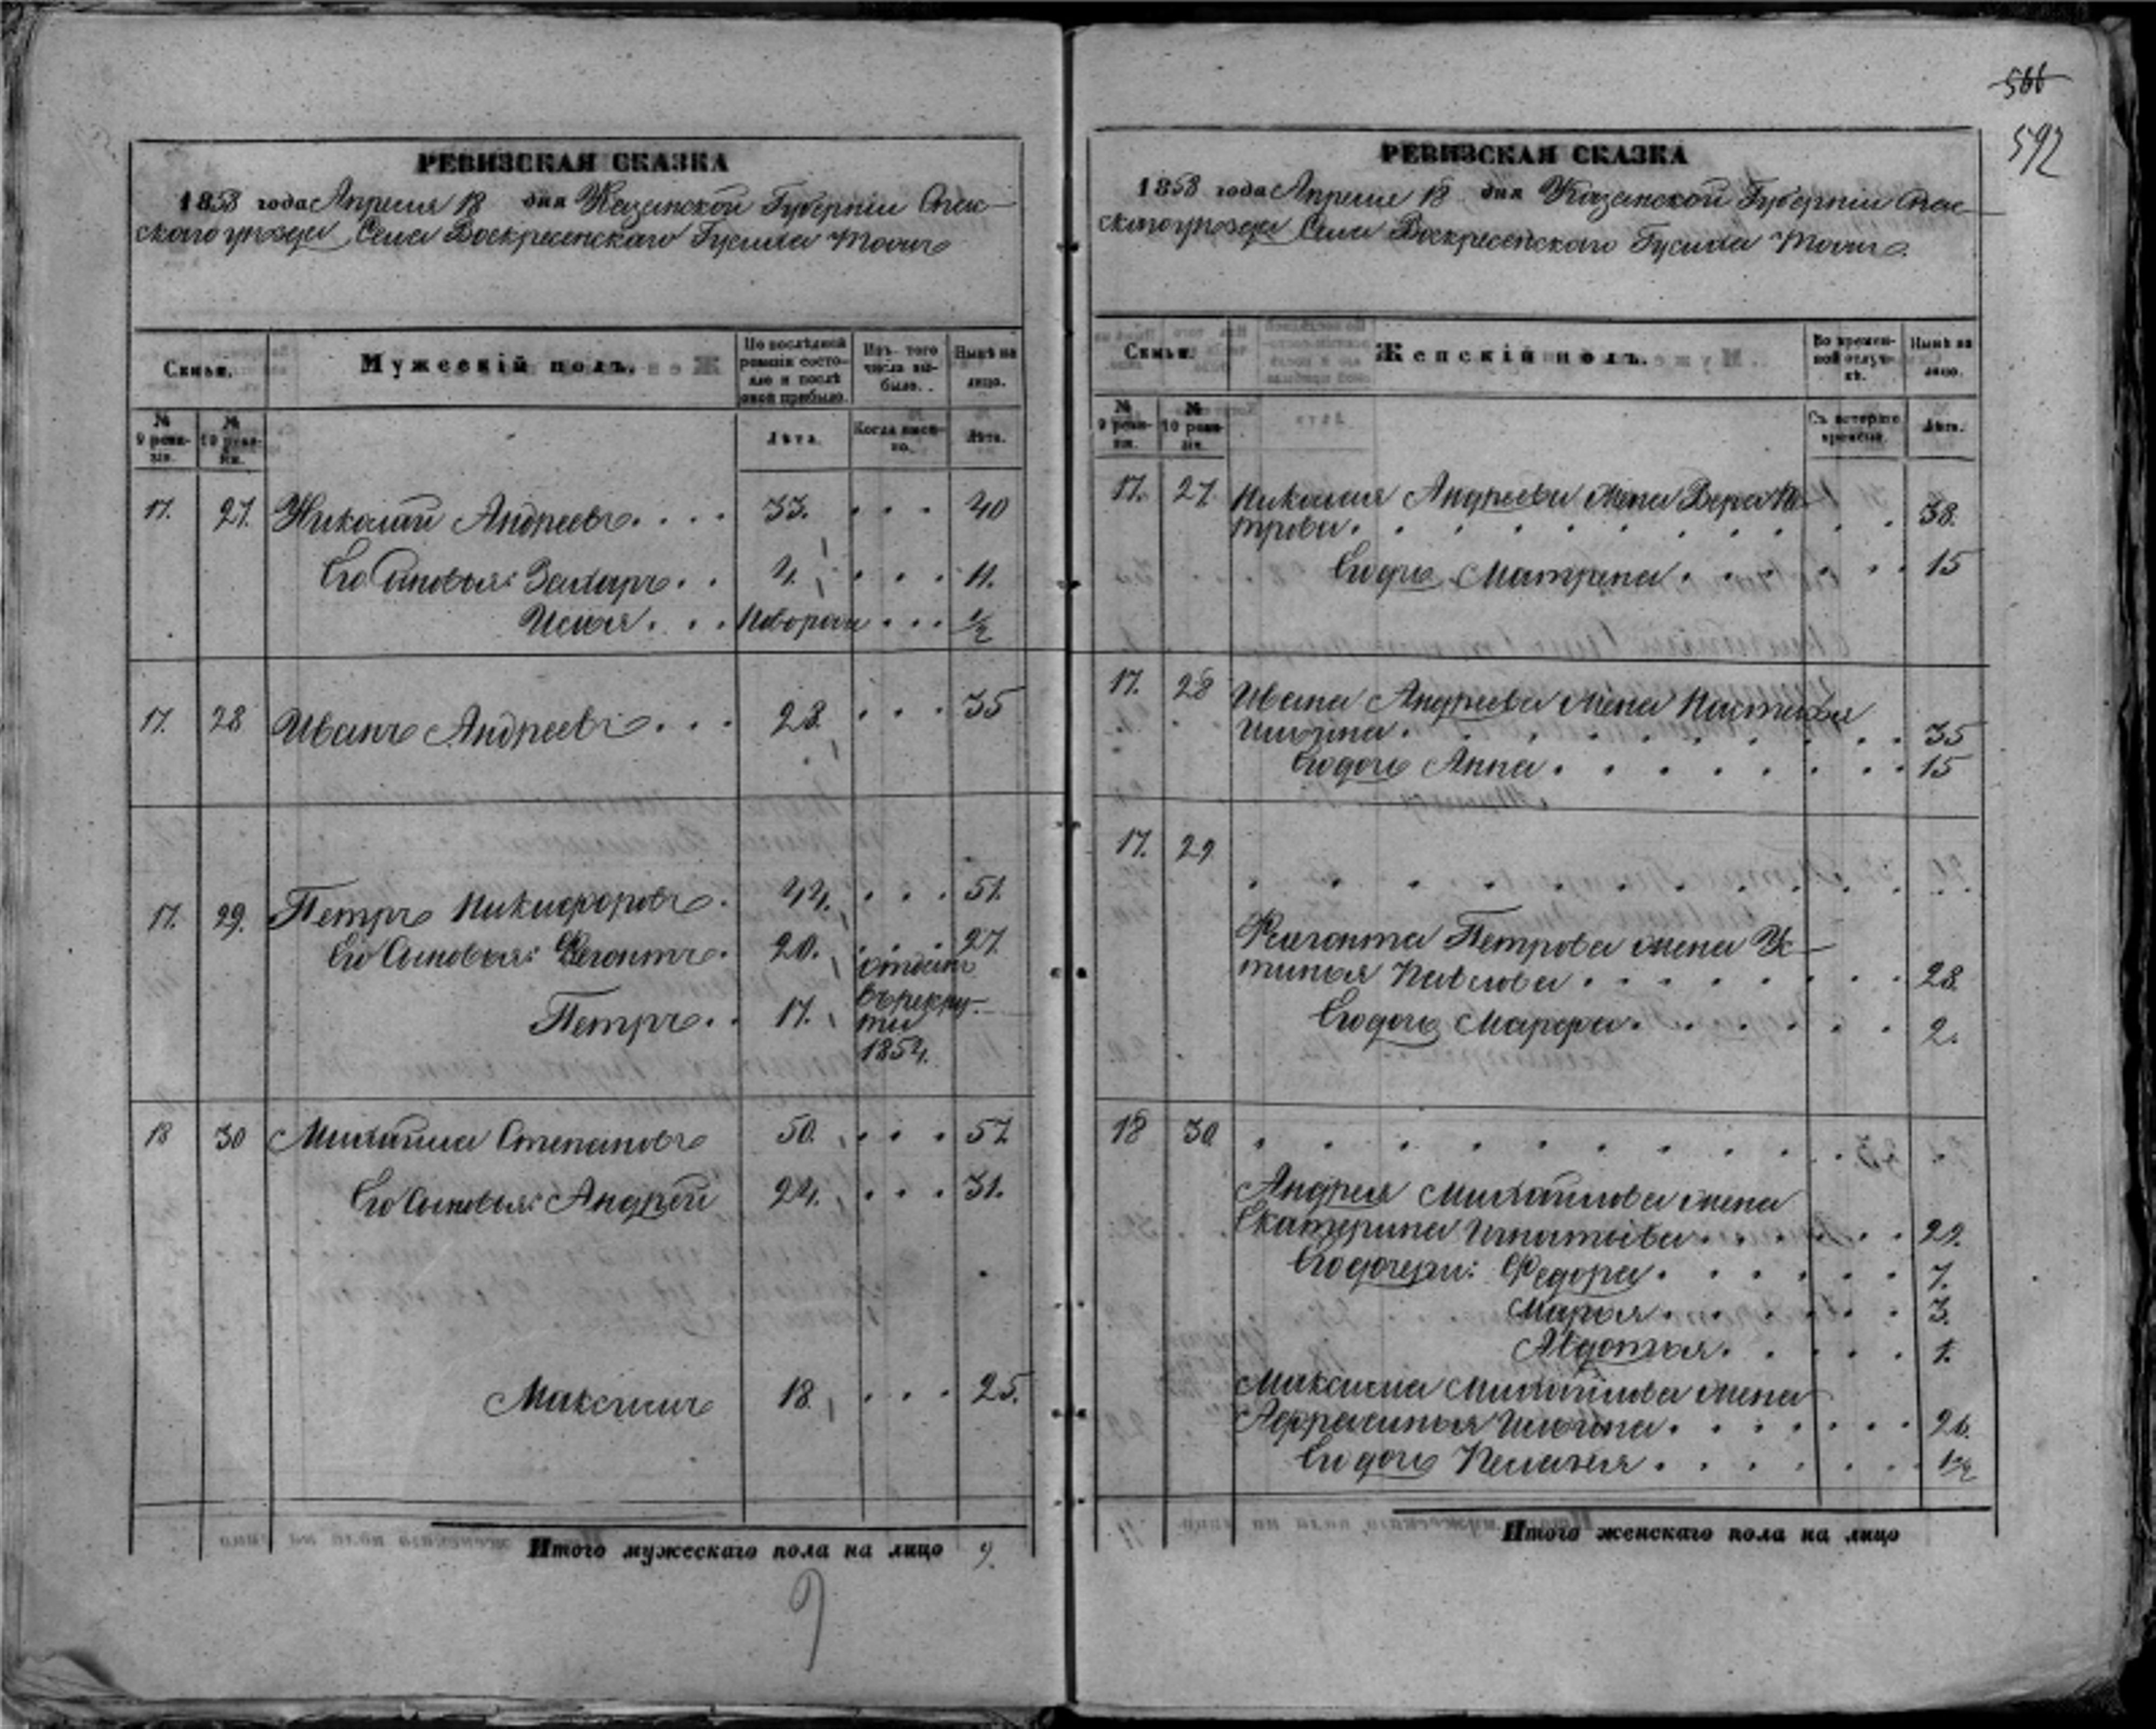 566
592
РЕВИЗСКАЯ СКАЗКА
1858 года Апреля 18 дня Казанской Губернiи Спас-
скаго уѣзда Села Воскресенскаго Гусиха тожъ
Семьи.
Мужескiй полъ.
По послѣдней ревизiи состо-
яло и послѣ
оной прибыло.
Изъ того
числа вы-
было.
Нынѣ на
лицо.
№
9 реви-
зiи.
№
10 реви-
зiи.
Лѣта.
Когда имен-
но.
Лѣта.
17. 27. Николай Андреевъ . . . . 33. . . . 40
Его Сыновья: Захаръ . . 4. . . . 11.
Исай . . . Новорож . . . 1/2
17. 28 Иванъ Андреевъ . . . 28. . . . 35
17. 29. Петръ Никифоровъ . 44. . . . 51.
Его Сыновья: Ферапонтъ . 20. . . . 27
Петръ . . 17.
отданъ
въ рекру-
ты
1854.
18 30 Михайла Степановъ 50. . . . 57
Его Сыновья: Андрей 24. . . . 31.
Максимъ 18. . . . 25.
Итого мужескаго пола на лицо 9.
9
РЕВИЗСКАЯ СКАЗКА
1858 года Апреля 18 дня Казанской Губернiи Спас-
скаго уѣзда Села Воскресенскаго Гусиха тожъ.
Семьи.
Женскiй полъ.
Во времен-
ной отлуч-
кѣ.
Нынѣ на
лицо.
№
9 реви-
зiи.
№
10 реви-
зiи.
Съ котораго
времени.
Лѣта.
17. 27. Николая Андреева жена Вера Пе-
трова . . . . . . . . . . 38.
Его дочь Матрена . . . . . . 15
17. 28 Ивана Андреева жена Настасья
Ильина . . . . . . . . . . 35
Его дочь Анна . . . . . . . . 15
17. 29 . . . . . . . . . . . .
Петрова жена Ус-
тинья Павлова . . . . . . . . 28.
Его дочь Марфа . . . . . . 2.
18 30 . . . . . . . . . . .
Андрея Михайлова жена
Екатерина Игнатьева . . . . . . 29.
Его дочери: Федора . . . . . . 7.
Марья . . . . . . 3.
Авдотья . . . . . 1.
Максима Михайлова жена
Афросинья Ильина . . . . . . . 26.
Его дочь Пелагея . . . . . . . 1/2
Итого женскаго пола на лицо